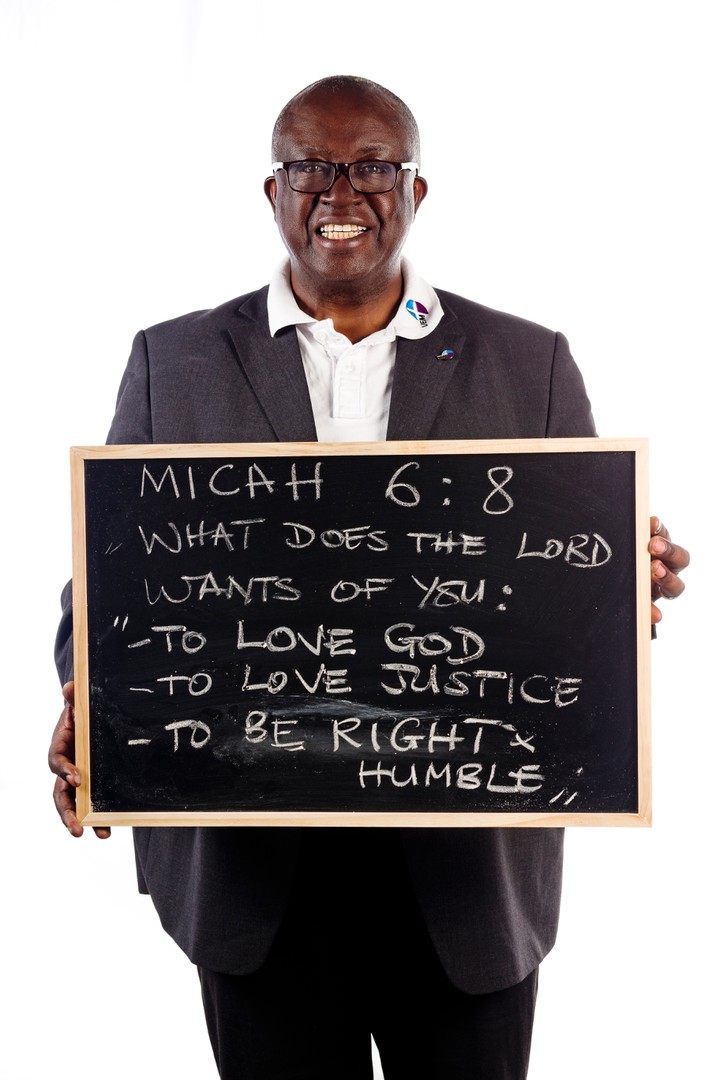 MICAH 6:8
" WHAT DOES THE LORD
WANTS OF YOU:
" - TO LOVE GOD
- TO LOVE JUSTICE
- TO BE RIGHT &
HUMBLE "
VEM